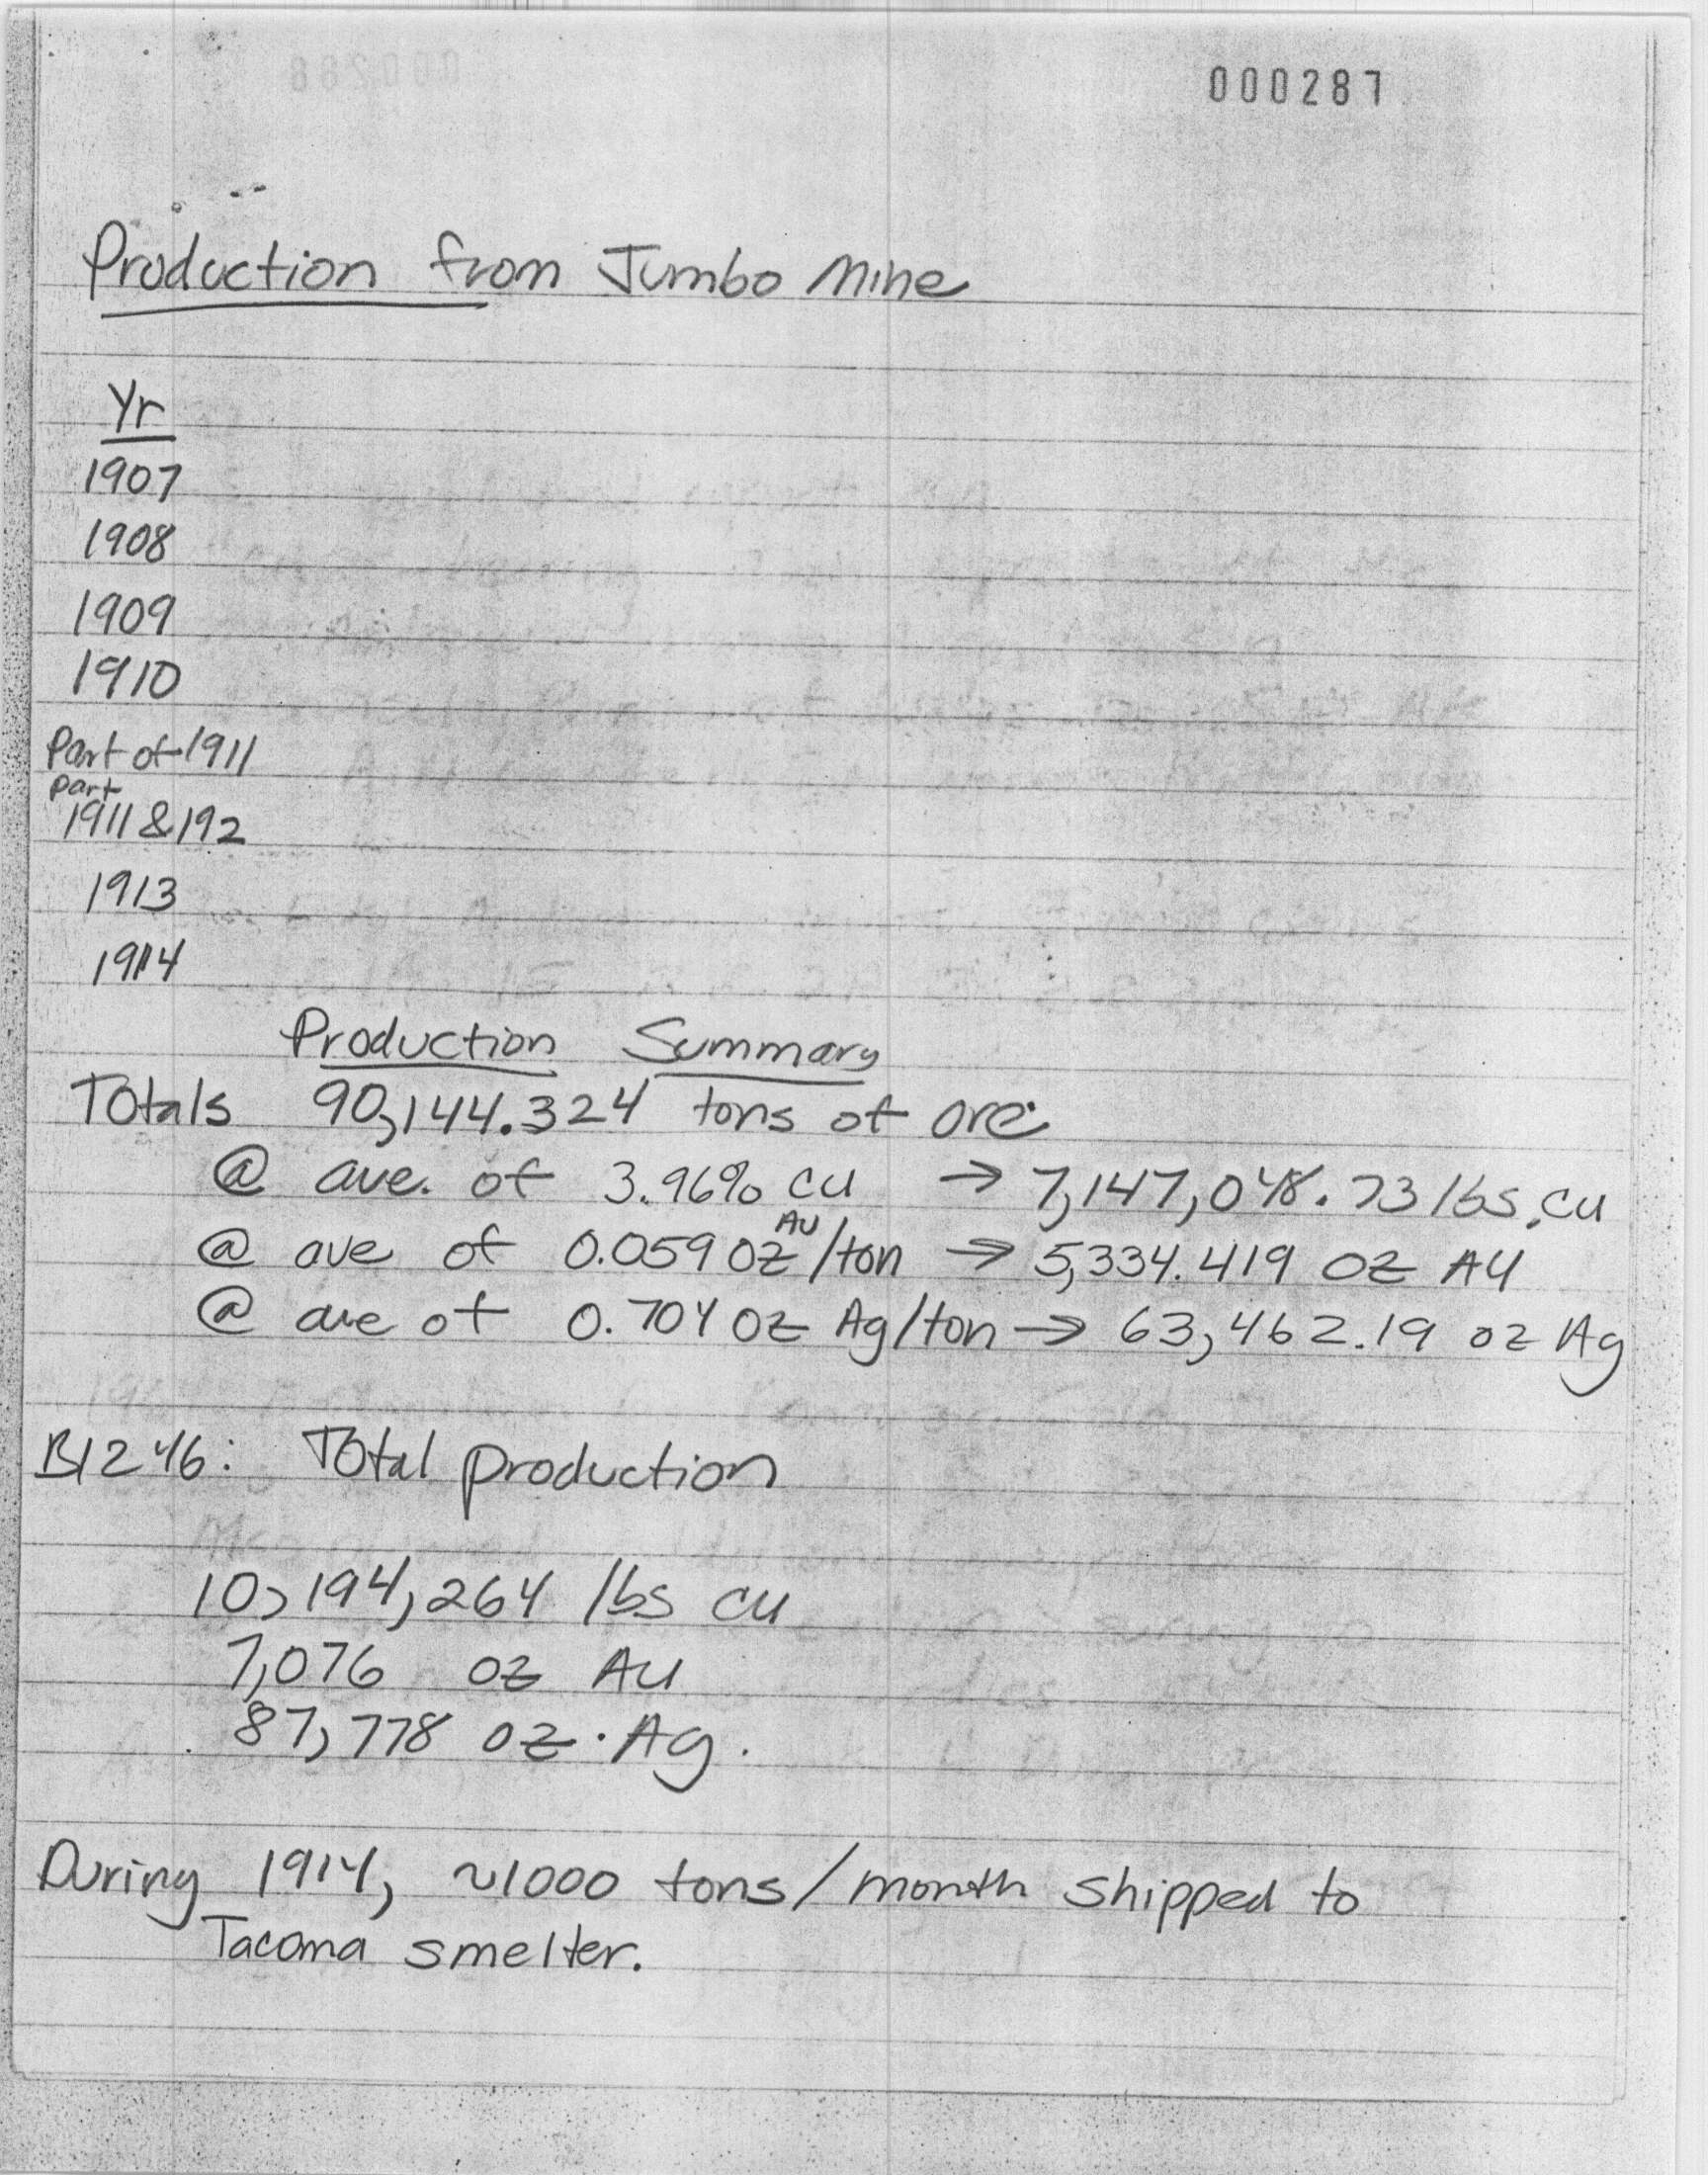 000287
Production from Jumbo Mine
Yr
1907
1908
1909
1910
Part of 1911
part
1911 & 192
1913
1914
Production Summary
Totals 90,144.324 tons of ore
@ ave. of 3.96% cu → 7,147,048.73 lbs. cu
@ ave of 0.059 oz AU/ton → 5,334.419 oz AU
@ ave of 0.704 oz Ag/ton → 63,462.19 oz Ag
B1246: Total production
10,194,264 lbs cu
7,076 oz Au
87,778 oz. Ag.
During 1914, ~1000 tons/month shipped to
Tacoma smelter.